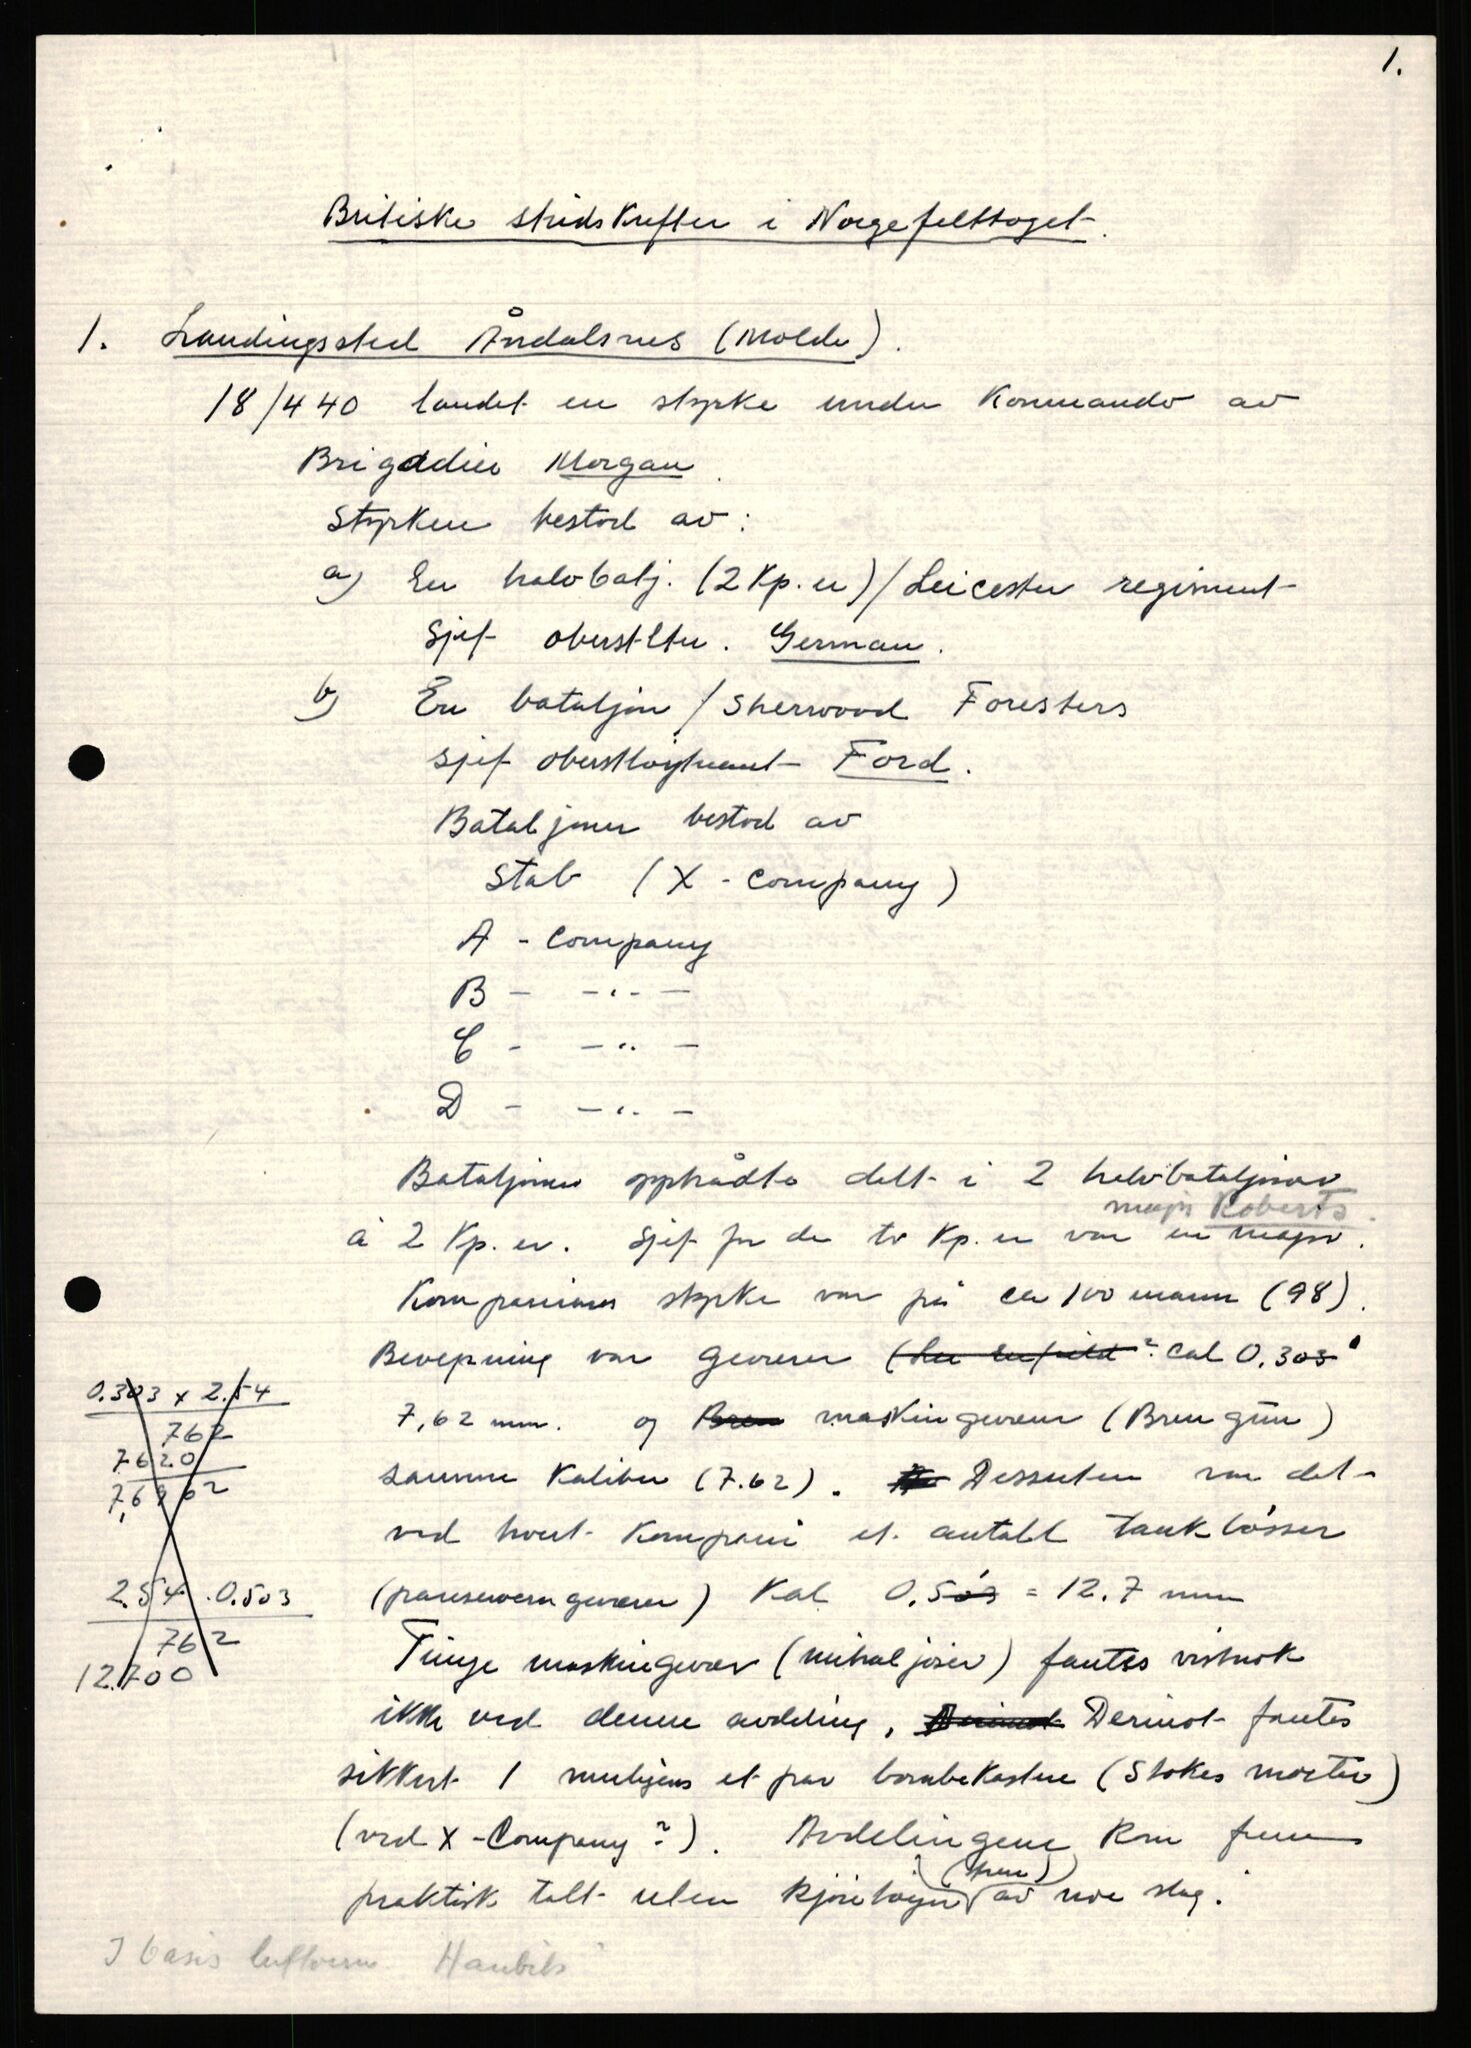 1.
Britiske stridskrefter i Norgefelttoget.
1. Landingssted Åndalsnes (Molde).
18/4 40 landet en styrke under kommando av
Brigadier Morgan.
Styrken bestod av:
a) En halvbatj. (2 Kp.er) / Leicester regiment
Sjef oberstltn. German.
b) En bataljon / Sherwood Foresters
sjef oberstløytnant Ford.
Bataljonen bestod av
Stab (X - Company)
A - Company
B - -"-
C - -"-
D - -"-
Bataljonen opptrådte delt i 2 halvbataljoner
major Roberts.
à 2 Kp.er. Sjef for de to Kp.er var en major.
Kompanienes styrke var på ca 100 mann (98).
Bevepning var geværer (Lee Enfield? Cal 0.303
7,62 mm. og Bren maskingeværer (Bren gun)
samme kaliber (7.62). Dessuten var det
ved hvert kompani et antall tankbøsser
(panservern geværer) Kal 0.503 = 12.7 mm
Tunge maskingevær (mitraljøser) fantes visstnok
ikke ved denne avdeling, Derimot Derimot fantes
sikkert 1 muligens et par bombekastere (Stokes morter)
(ved X - Company?). Avdelingene kom frem
praktisk talt uten kjøretøyer av noe slag.
0.303 x 2.54
762
7620
7,6962
2.54 . 0.503
762
12.700
I basis luftvern Haubits